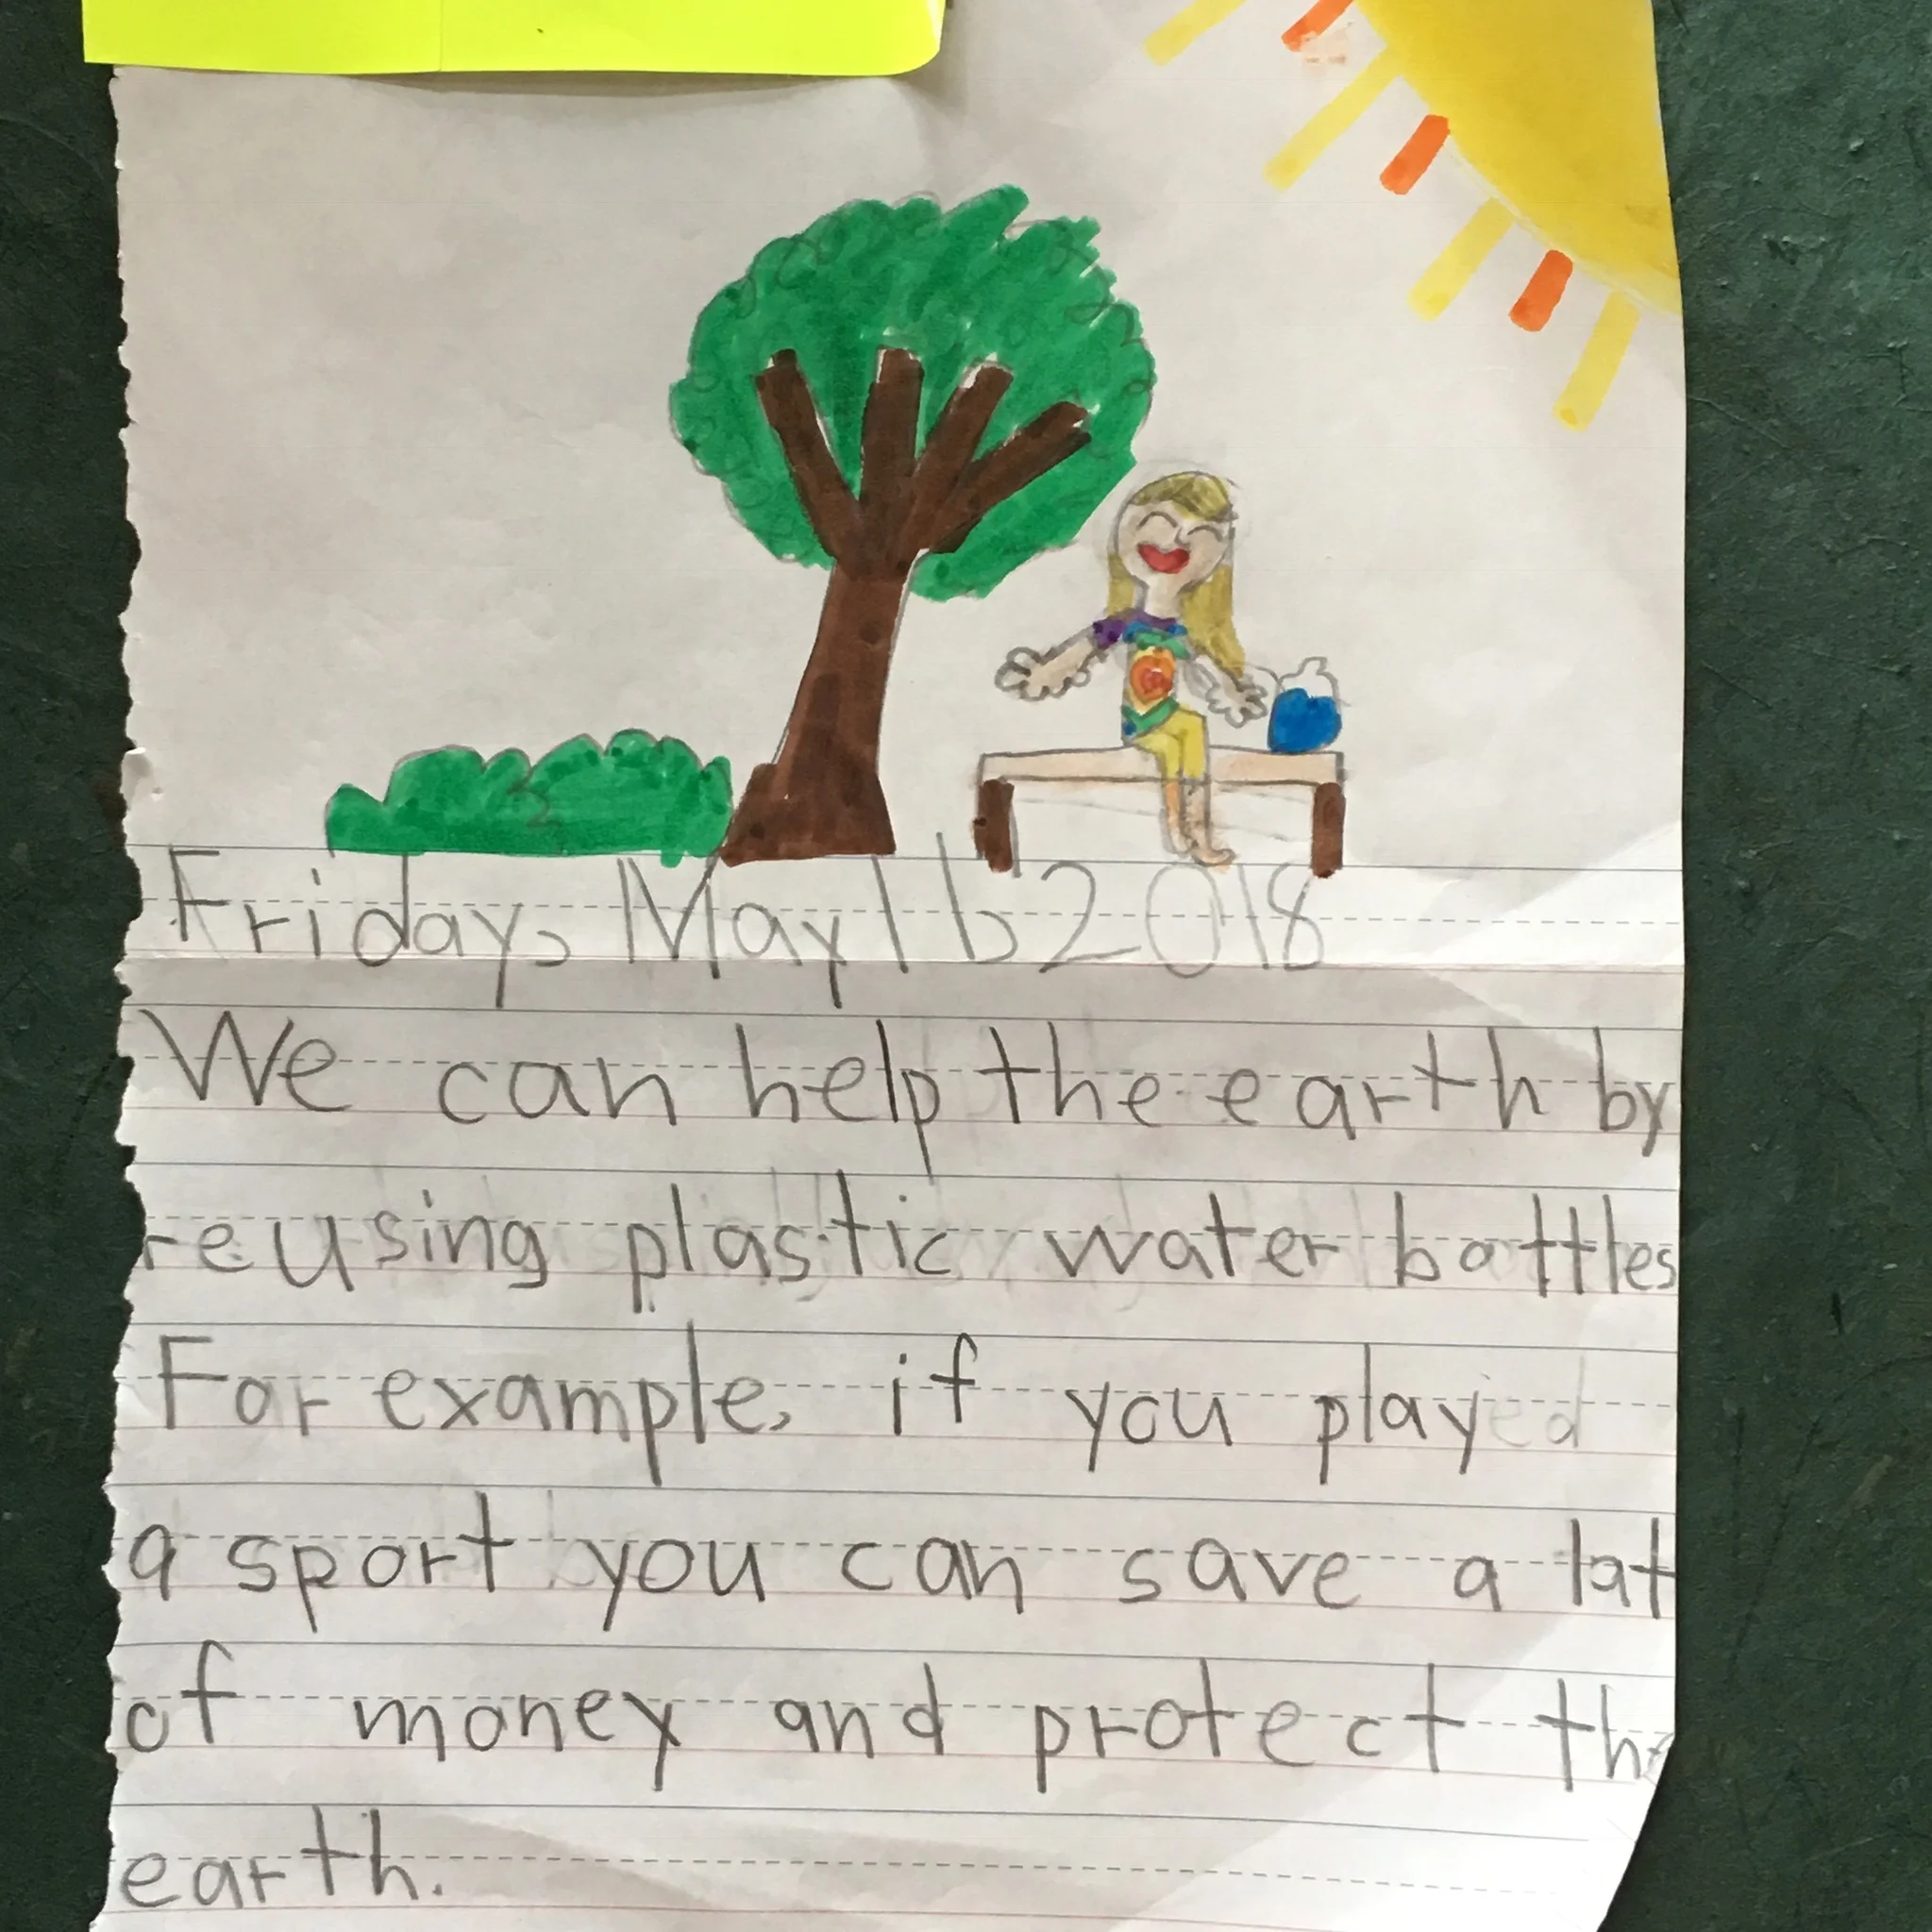 Friday, May 16 2018
We can help the earth by
reusing plastic water bottles
For example, if you played
a sport you can save a lot
of money and protect the
earth.